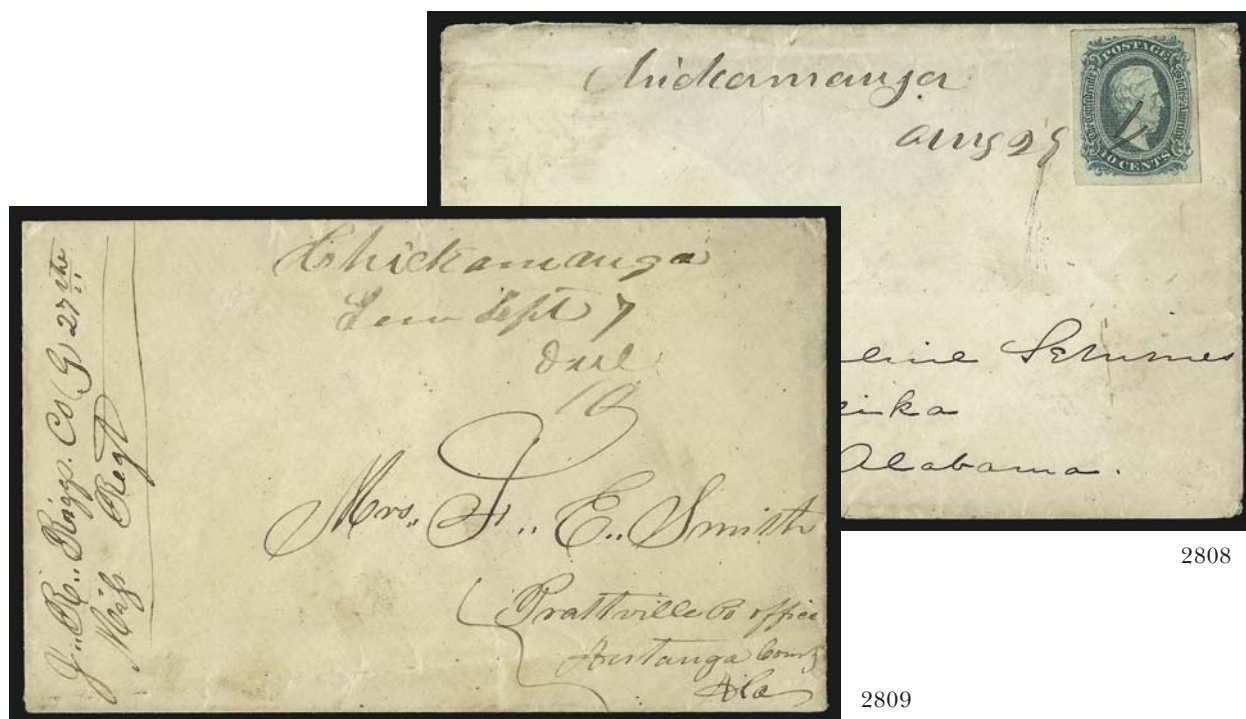 Chickamauga
Aug 29
POSTAGE
The Confederate States America
10 CENTS
eline Semmes
eika
Alabama.
2808
J.. R.. Raggs. Co (G) 27ths
Miss Regt
Chickamauga
Tenn Sept 7
Due
10
Mrs.. F.. E.. Smith
Prattville Po office
Autauga County
Ala
2809